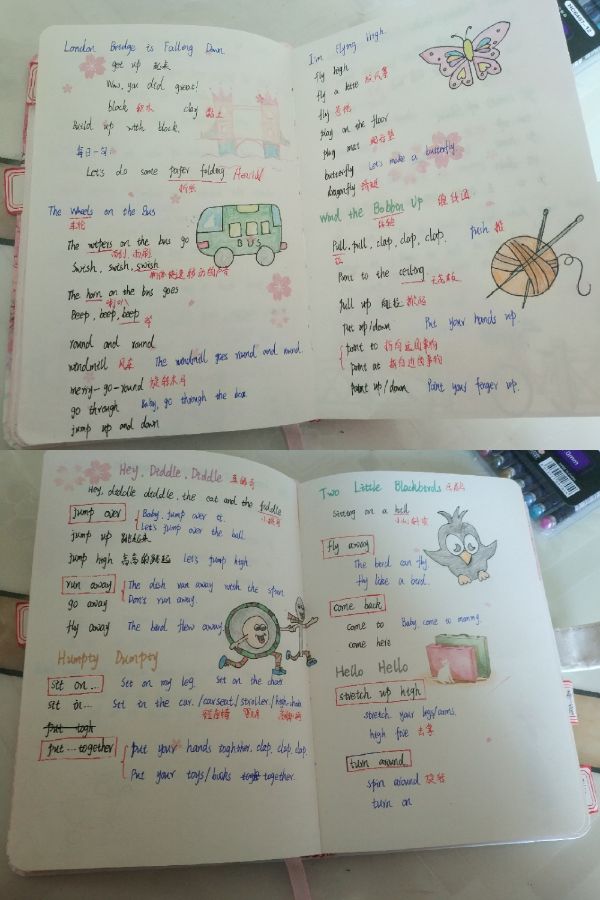 London Bridge is Falling Down
get up 起来
Wow, you did great!
block 积木 clay 黏土
Build up with block.
每日一句
Let's do some paper folding
折纸
The Wheels on the Bus
车轮
The wipers on the bus go
雨刮, 雨刷
Swish, swish, swish
The horn on the bus goes
喇叭
Beep, beep, beep
BUS
round and round
windmill 风车 The windmill goes round and round.
merry-go-round 旋转木马
go through Baby, go through the box
jump up and down
I'm Flying High
fly high
fly a kite 放风筝
fly 苍蝇
play on the floor
play mat 爬行垫
butterfly Let's make a butterfly
dragonfly 蜻蜓
Wind the Bobbin Up 缠线团
Pull, pull, clap, clap, clap. push 推
拉
Point to the ceiling
天花板
pull up
Put up/down Put your hands up
point to 指向远的事物
point at 指向近的事物
Point up/down Point your finger up.
Hey, Diddle, Diddle
Hey, diddle diddle, the cat and the fiddle
小提琴
jump over Baby, jump over it.
Let's jump over the ball.
jump up 跳起来
jump high 高高的跳起 Let's jump high.
run away The dish ran away with the spoon
go away Don't run away.
fly away The bird flew away
Humpty Dumpty
sit on... Sit on my leg. Sit on the chair
sit in... Sit in the car./carseat/stroller/high-chair
put togh
put...together put your hands toghther. clap, clap, clap.
Put your toys/books together.
Two Little Blackbirds
Sitting on a hill
fly away
The bird can fly
fly like a bird.
come back
come to Baby come to mommy.
come here
Hello Hello
stretch up high
stretch your legs/arms.
high five 击掌
turn around
spin around 旋转
turn on